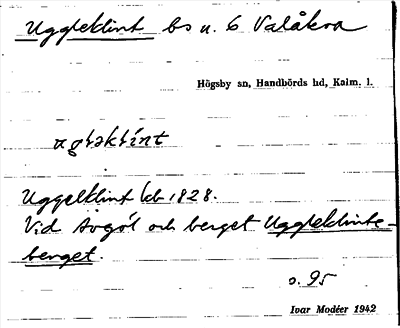 Uggleklint bs u. 6 Valåkra
Högsby sn, Handbörds hd, Kalm. l.
Uggelklint kb 1828.
Vid Avgöl och berget Uggleklints-
berget.
s. 95
Ivar Modéer 1942